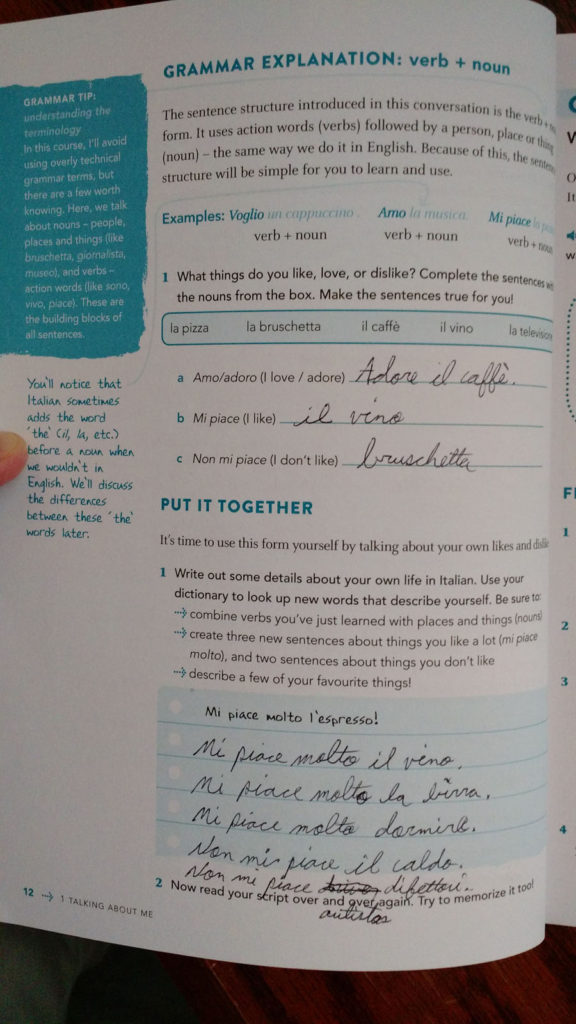 GRAMMAR EXPLANATION: verb + noun
The sentence structure introduced in this conversation is the verb +
form. It uses action words (verbs) followed by a person, place or thing
(noun) – the same way we do it in English. Because of this, the
structure will be simple for you to learn and use.
Examples: Voglio un cappuccino. Amo la musica. Mi piace la
verb + noun verb + noun verb + noun
1 What things do you like, love, or dislike? Complete the sentences
the nouns from the box. Make the sentences true for you!
la pizza la bruschetta il caffè il vino la television
a Amo/adoro (I love / adore) Adore il caffè.
b Mi piace (I like) il vino
c Non mi piace (I don't like) bruschetta
PUT IT TOGETHER
It's time to use this form yourself by talking about your own likes and
1 Write out some details about your own life in Italian. Use your
dictionary to look up new words that describe yourself. Be sure to:
combine verbs you've just learned with places and things (nouns)
create three new sentences about things you like a lot (mi piace
molto), and two sentences about things you don't like
describe a few of your favourite things!
Mi piace molto l'espresso!
Mi piace molto il vino.
Mi piace molto la birra.
Mi piace molto dormire.
Non mi piace il caldo.
Non mi piace difettori.
autistas
2 Now read your script over and over again. Try to memorize it too!
12 1 TALKING ABOUT ME
GRAMMAR TIP:
understanding the
terminology
In this course, I'll avoid
using overly technical
grammar terms, but
there are a few worth
knowing. Here, we talk
about nouns – people,
places and things (like
bruschetta, giornalista,
museo), and verbs –
action words (like sono,
vivo, piace). These are
the building blocks of
all sentences.
You'll notice that
Italian sometimes
adds the word
'the' (il, la, etc.)
before a noun when
we wouldn't in
English. We'll discuss
the differences
between these 'the'
words later.